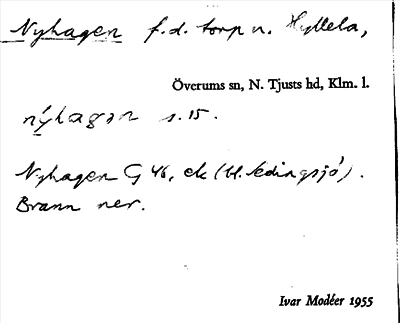 Nyhagen f.d. torp u. Hyllela,
Överums sn, N. Tjusts hd, Klm. l.
nýhagən s. 15.
Nyhagen G 46, ek (bl.
Brann ner.
Ivar Modéer 1955